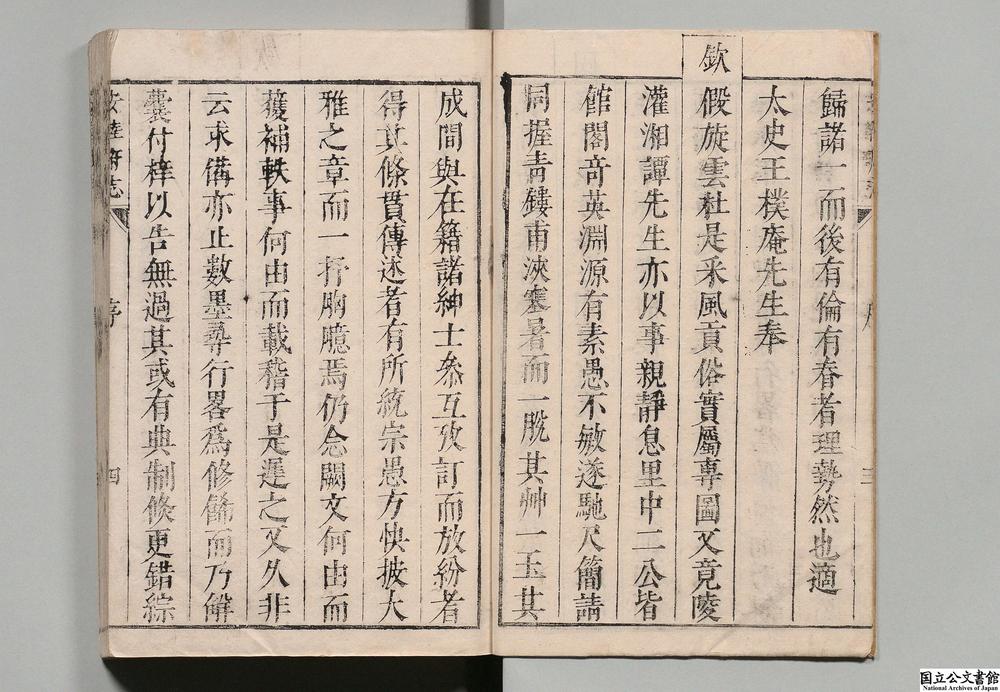 歸諸一而後有倫有脊者理勢然也適
太史王樸庵先生奉
欽
假旋雲杜是采風貢俗實屬專圖又竟陵
灌湘譚先生亦以事親靜息里中二公皆
館閣奇英淵源有素愚不敏遂馳尺簡請
同握青鏤甫浹寒暑而一脫其艸一玉其
成間與在籍諸紳士叅互攷訂而放紛者
得其條貫傳述者有所統宗愚方快披大
雅之章而一抒胸臆焉仍念闕文何由而
獲補軼事何由而載稽于是遲之又久非
云求備亦止數墨尋行畧爲修餙而乃觧
囊付梓以告無過其或有典制倐更錯綜
安陸府志
序
四
国立公文書館
National Archives of Japan